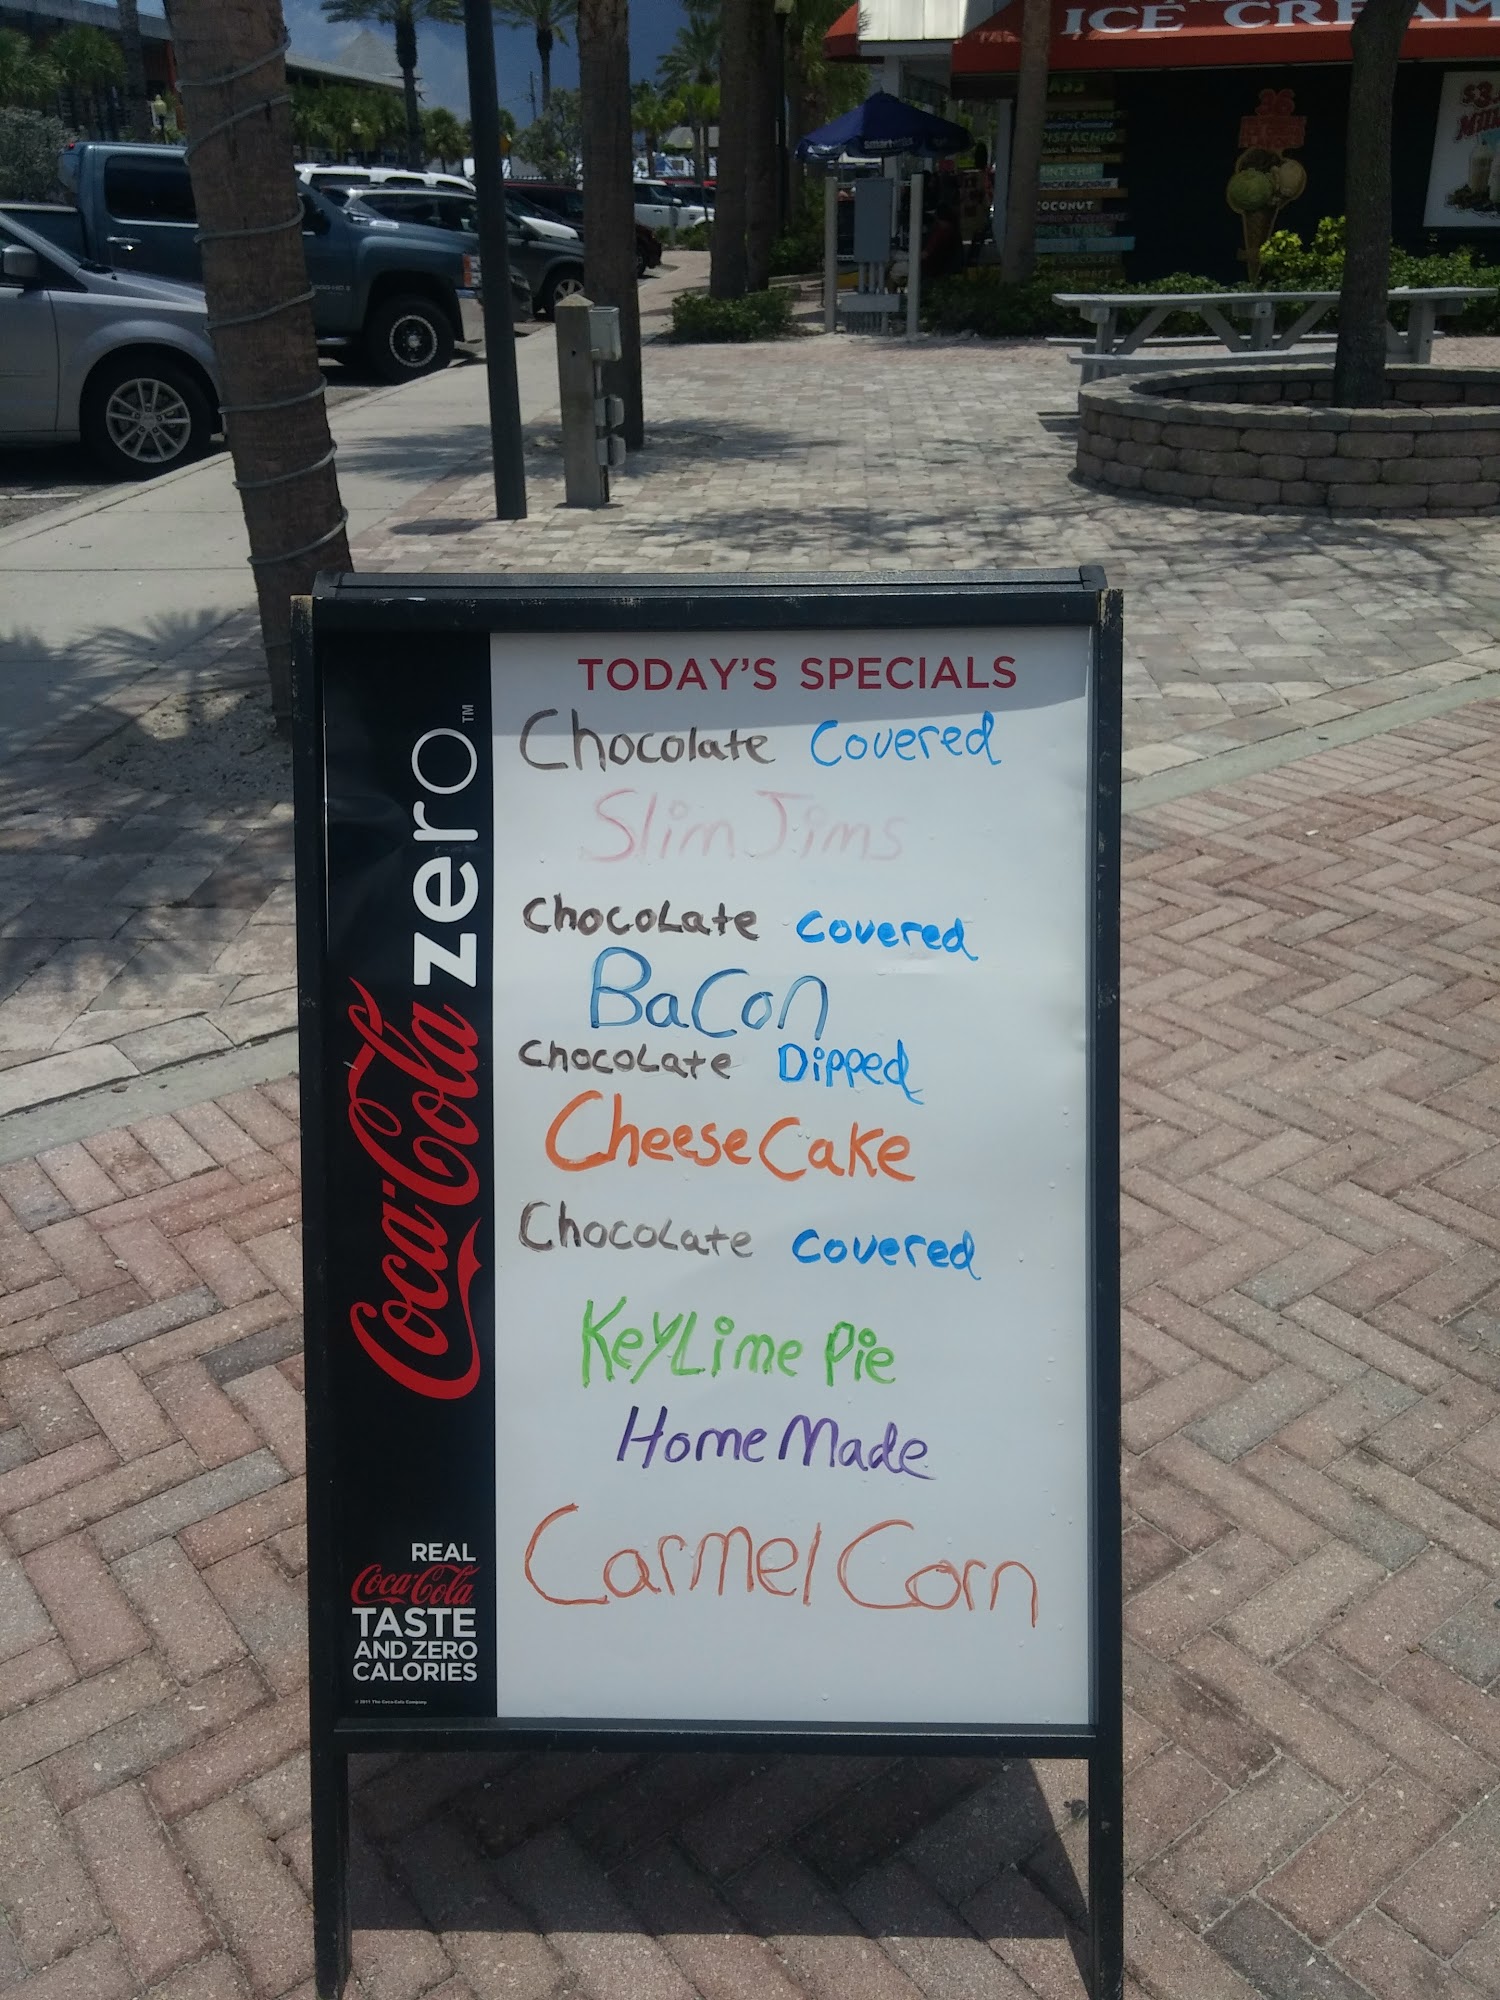 ICE CREAM
PISTACHIO
MINT CHIP
COCONUT
36
smart
TODAY'S SPECIALS
Chocolate Covered
Slim Jims
Chocolate Covered
Bacon
Chocolate Dipped
Cheese Cake
Chocolate Covered
Key Lime Pie
Home Made
Carmel Corn
Coca-Cola zero™
REAL
Coca-Cola
TASTE
AND ZERO
CALORIES
© 2011 The Coca-Cola Company